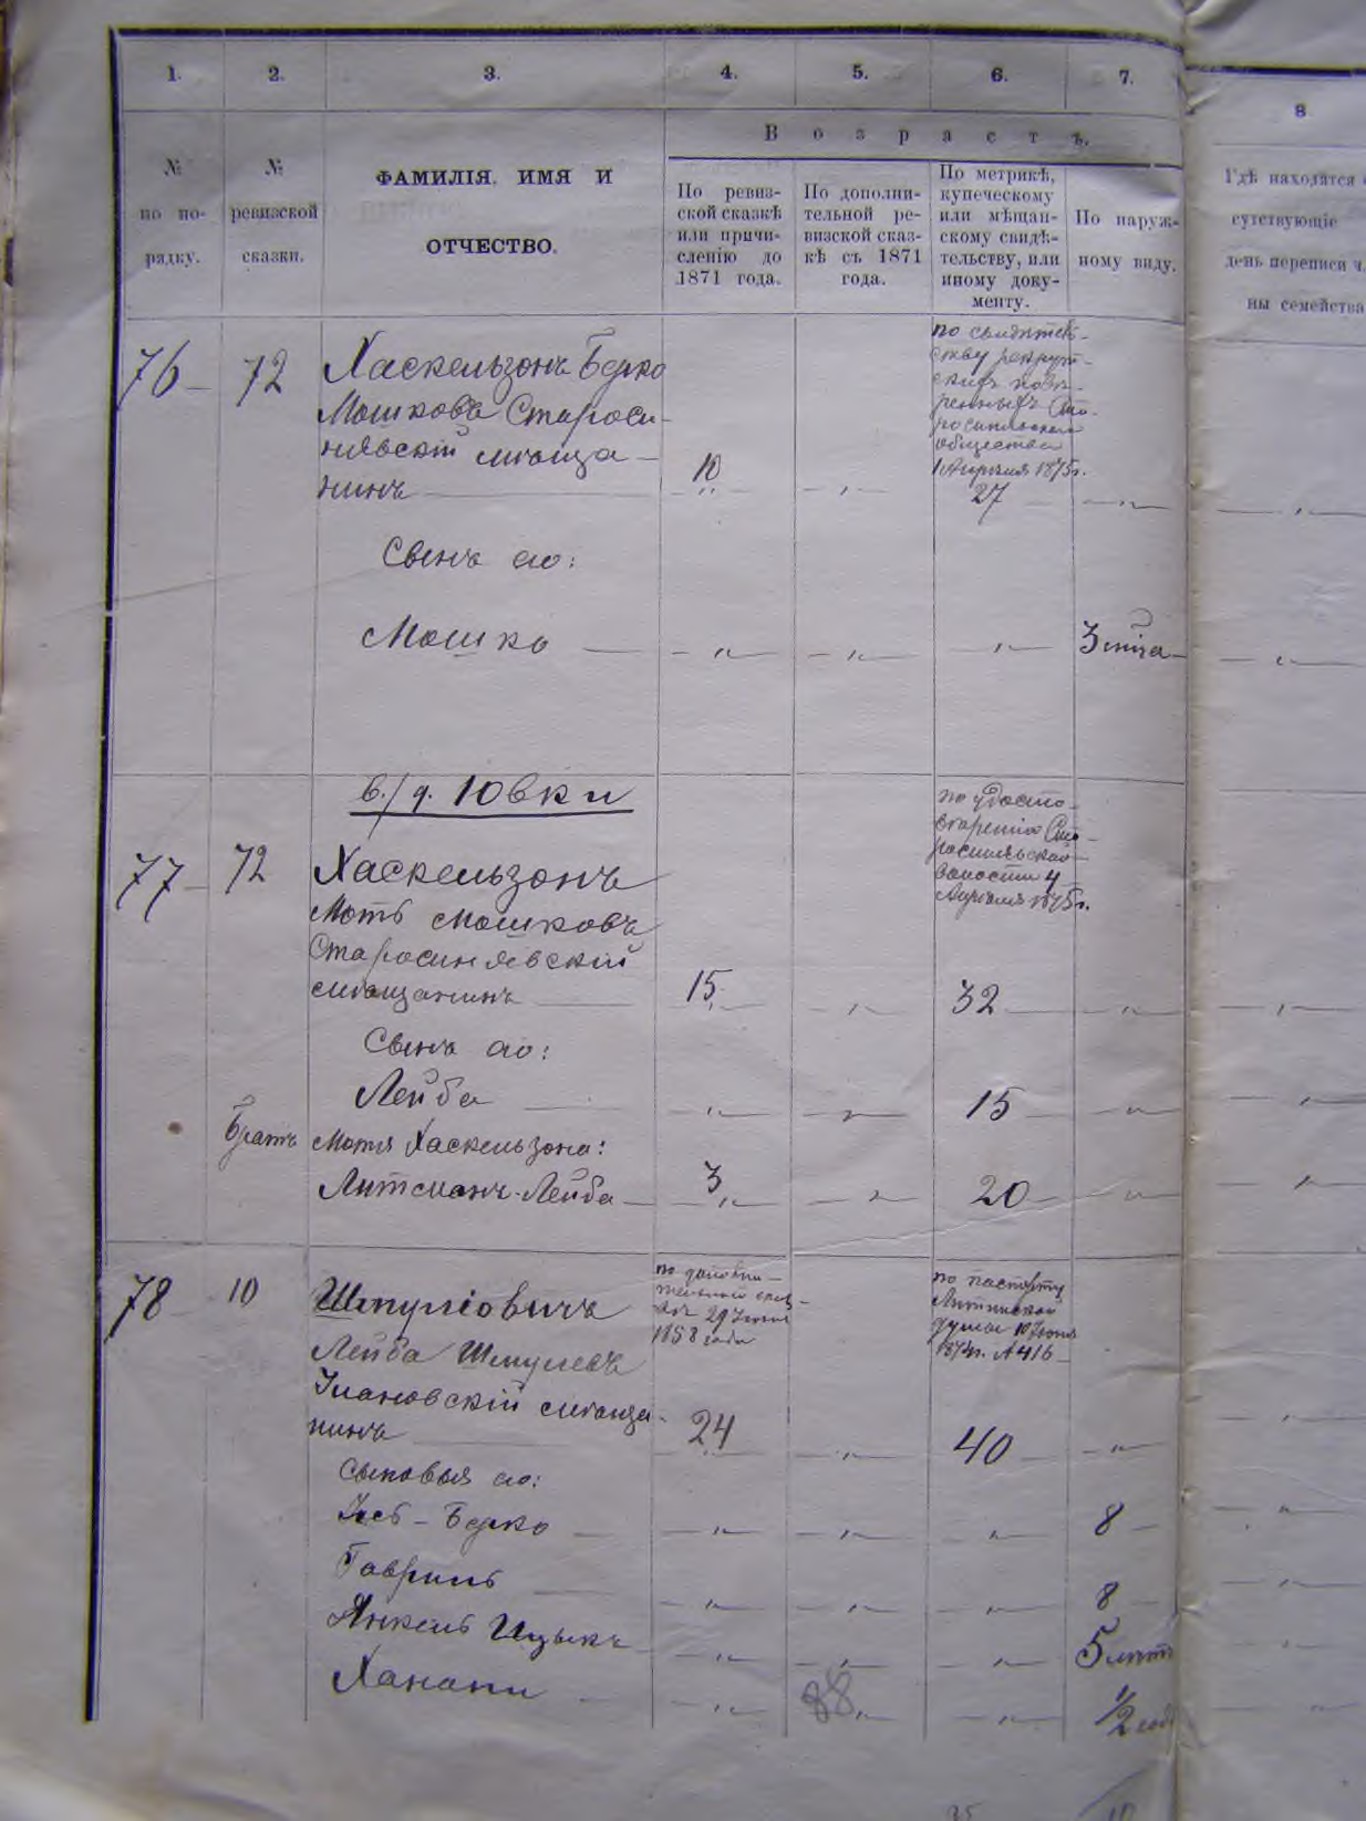 1. 2. 3. 4. 5. 6. 7.
8
Возрастъ.
№ по по-
рядку.
№
ревизской
сказки.
ФАМИЛІЯ, ИМЯ И
ОТЧЕСТВО.
По ревиз-
ской сказкѣ
или причи-
сленію до
1871 года.
По дополни-
тельной ре-
визской сказ-
кѣ съ 1871
года.
По метрикѣ,
купеческому
или мѣщан-
скому свидѣ-
тельству, или
иному доку-
менту.
По наруж-
ному виду.
Гдѣ находятся
сутствующіе
день переписи ч
ны семейства
76 72 Хаскельзонъ Берко
Мошковъ Староси-
нявскій мѣща-
нинъ
10
по свидѣтель-
ству рекрут-
скихъ повѣ-
ренныхъ Ста-
росинявскаго
общества
1 Апрѣля 1875г.
27
Сынъ его:
Мошко 3 лѣта
в./д. Ювки
77 72 Хаскельзонъ
Моть Мошковъ
Старосинявскій
мѣщанинъ 15 32
по удосто-
вѣренію Ста-
росинявской
волости 4
Апрѣля 1875г.
Сынъ его:
Лейба 15
Братъ Мотя Хаскельзона:
Литманъ-Лейба 3 20
78 10 Шмулiовичъ
Лейба Шмулевъ
Улановскій мѣща-
нинъ 24 40
по дополни-
тельной сказ-
кѣ 29
1858 года
по паспорту
Литинской
думы 10 Іюня
№ 416
Сыновья его:
Іосъ-Берко 8
Гавриль 8
Янкель Ицыкъ 5 лѣтъ
Ханани 1/2 года
88